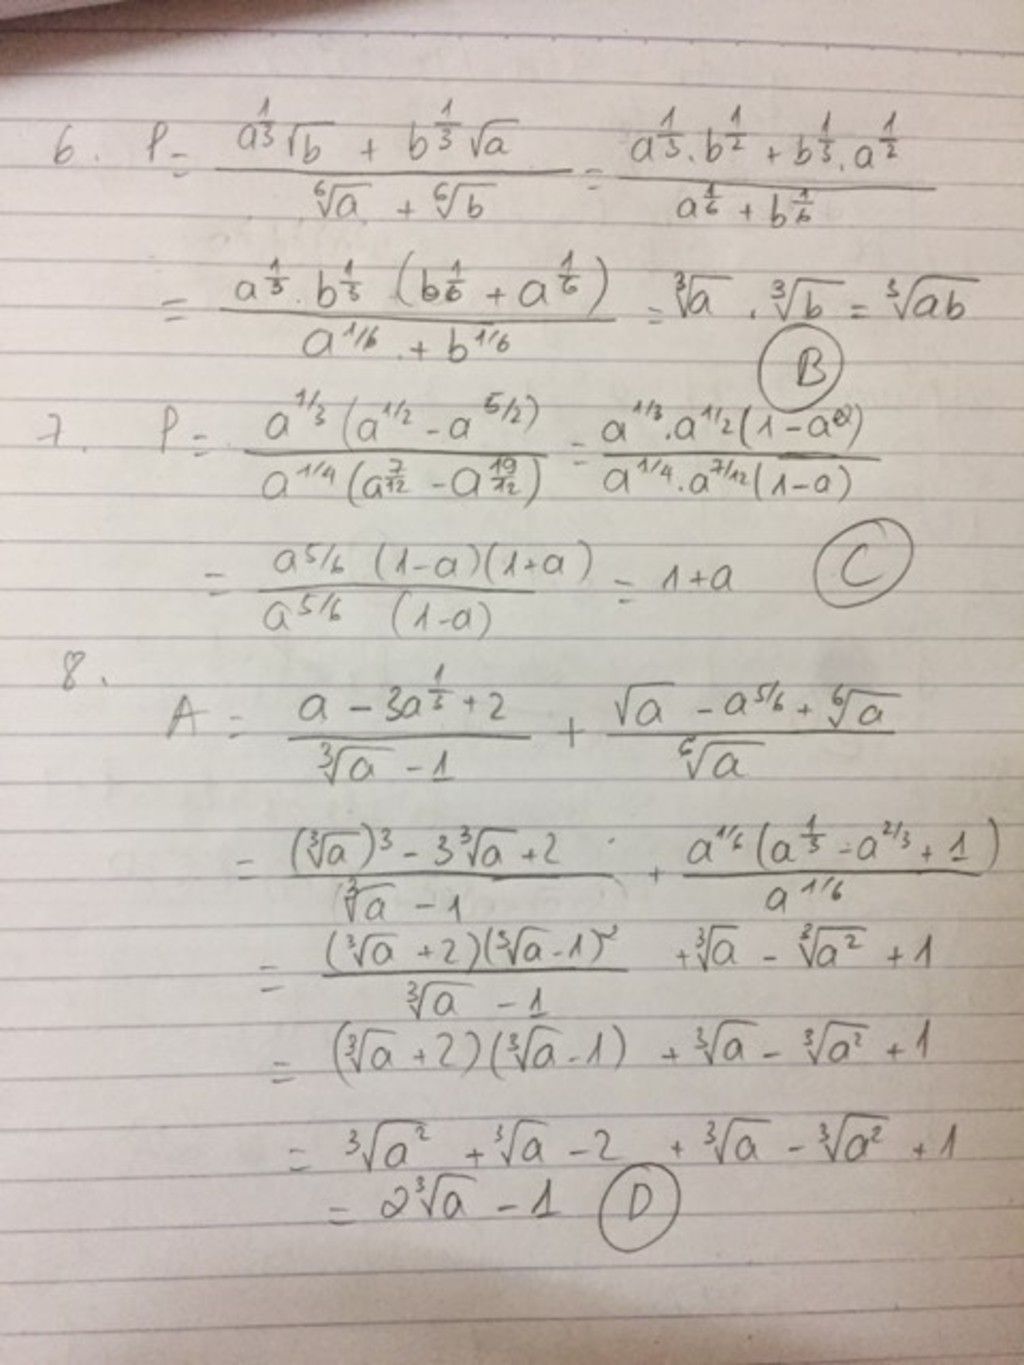 6. P = (a^{1/3}√b + b^{1/3}√a) / (⁶√a + ⁶√b) = (a^{1/3}.b^{1/2} + b^{1/3}.a^{1/2}) / (a^{1/6} + b^{1/6})
= (a^{1/3}.b^{1/3} (b^{1/6} + a^{1/6})) / (a^{1/6} + b^{1/6}) = ³√a . ³√b = ³√ab
B
7. P = (a^{1/3}(a^{1/2} - a^{5/2})) / (a^{1/4}(a^{7/12} - a^{19/12})) = (a^{1/3}.a^{1/2}(1-a^{2})) / (a^{1/4}.a^{7/12}(1-a))
= (a^{5/6} (1-a)(1+a)) / (a^{5/6} (1-a)) = 1+a C
8.
A = (a - 3a^{1/3} + 2) / (³√a - 1) + (√a - a^{5/6} + ⁶√a) / ⁶√a
= ((³√a)³ - 3³√a + 2) / (³√a - 1) + (a^{1/6}(a^{1/3} - a^{2/3} + 1)) / a^{1/6}
= ((³√a + 2)(³√a - 1)²) / (³√a - 1) + ³√a - ³√a² + 1
= (³√a + 2)(³√a - 1) + ³√a - ³√a² + 1
= ³√a² + ³√a - 2 + ³√a - ³√a² + 1
= 2³√a - 1 D